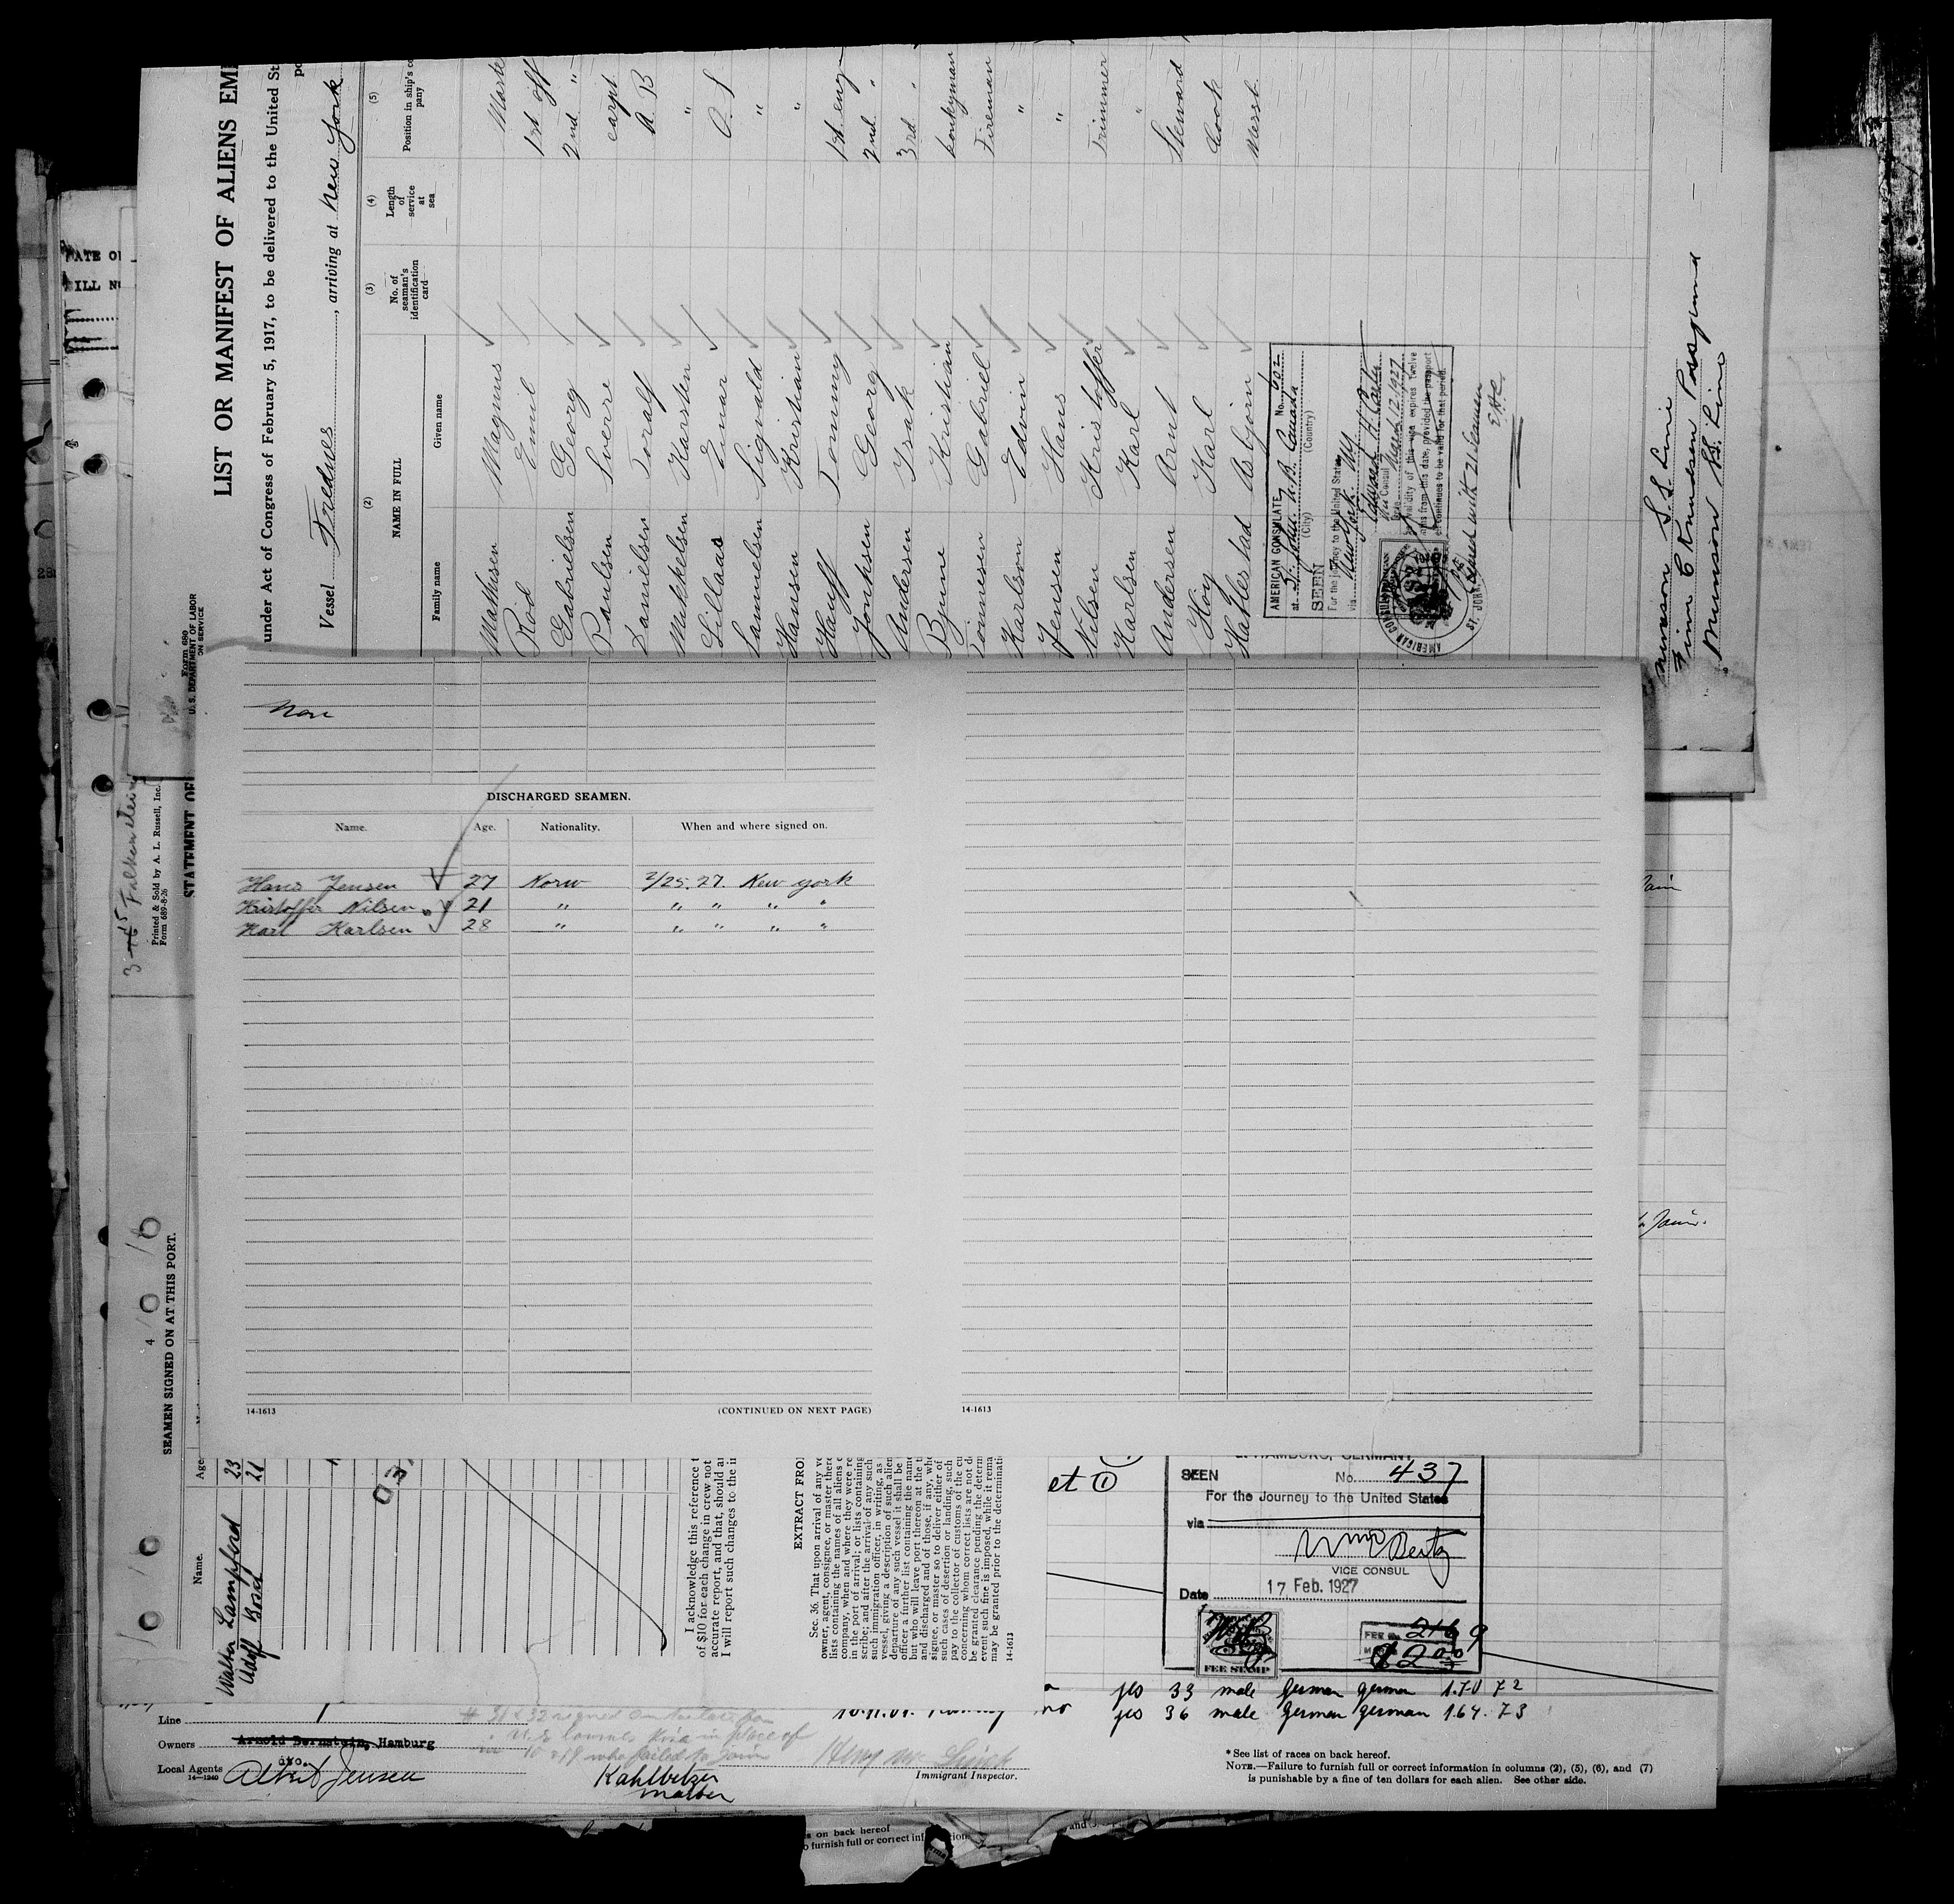 LIST OR MANIFEST OF ALIENS EM
under Act of Congress of February 5, 1917, to be delivered to the United St
Vessel Frednes, arriving at New York
(2) (3) (4) (5)
NAME IN FULL
Family name Given name No. of seaman's identification card Length of service at sea Position in ship's company
Mathisen Magnus Maste
Rod Emil 1st off
Gabrielsen Georg 2nd "
Paulsen Sverre carpt
Danielsen Toralf A B
Mikkelsen Karsten "
Lillaas Einar O. S
Samuelsen Sigvald "
Hansen Kristian "
Hauff Tommy 1st eng
Jonhsen Georg 2nd "
Andersen Isak 3rd "
Byrne Kristian Donkeyman
Tonnesen Gabriel Fireman
Karlson Edvin "
Jensen Hans "
Nilsen Kristoffer Trimmer
Karlsen Karl "
Andersen Arnt Steward
Hoy Karl Cook
Hablestad Asbjorn
AMERICAN CONSULATE No. 602
at St. John N.B. Canada
(City) (Country)
SEEN
For the journey to the United States
via New York NY
Edward A Carter
Vice Consul
Date March 12 1927
validity of this visa expires Twelve
from this date, provided the passport
continues to be valid for that period.
with 21 Seamen
Munson S.S. Line
Munson SS. Line
Form 689
U. S. DEPARTMENT OF LABOR
ON SERVICE
Falkenstein
Printed & Sold by A. L. Russell, Inc.
Form 689-8-26
STATEMENT OF
SEAMEN SIGNED ON AT THIS PORT.
Name. Age
Walter Lampferd 23
Adolf Bosch 21
Non
DISCHARGED SEAMEN.
Name. Age. Nationality. When and where signed on.
Hans Jensen 27 Norw 2/25.27. New York
Kristoffer Nilsen 21 " " " " "
Karl Karlsen 28 " " " " "
14-1613 (CONTINUED ON NEXT PAGE) 14-1613
I acknowledge this reference t
of $10 for each change in crew not
accurate report, and that, should a
I will report such changes to the i
EXTRACT FRO
Sec. 36. That upon arrival of any ve
owner, agent, consignee, or master there
lists containing the names of all aliens e
company, when and where they were re
in the port of arrival; or lists containing
scribe; and after the arrival of any such
such immigration officer, in writing, as
vessel, giving a description of such alien
departure of any such vessel it shall be
officer a further list containing the name
but who will leave port thereon at the t
and discharged and of those, if any, wh
signee, or master so to deliver either of
such cases of desertion or landing, such
pay to the collector of customs of the cu
concerning whom correct lists are not de
be granted clearance pending the determ
event such fine is imposed, while it rema
may be granted prior to the determinati
14-1613
HAMBURG, GERMANY
SEEN No. 437
For the Journey to the United States
via
VICE CONSUL
Date 17 Feb. 1927
FEE STAMP
FEE No. 2169
$2.00
yes 33 male German german 1.70 72
no yes 36 male German german 1.64. 73
Line
Owners Arnold Bernstein, Hamburg
Local Agents Albert Jensen
14-1240
Kahlbetzer
master
Immigrant Inspector.
*See list of races on back hereof.
NOTE.—Failure to furnish full or correct information in columns (2), (5), (6), and (7)
is punishable by a fine of ten dollars for each alien. See other side.
s on back hereof
o furnish full or correct inf